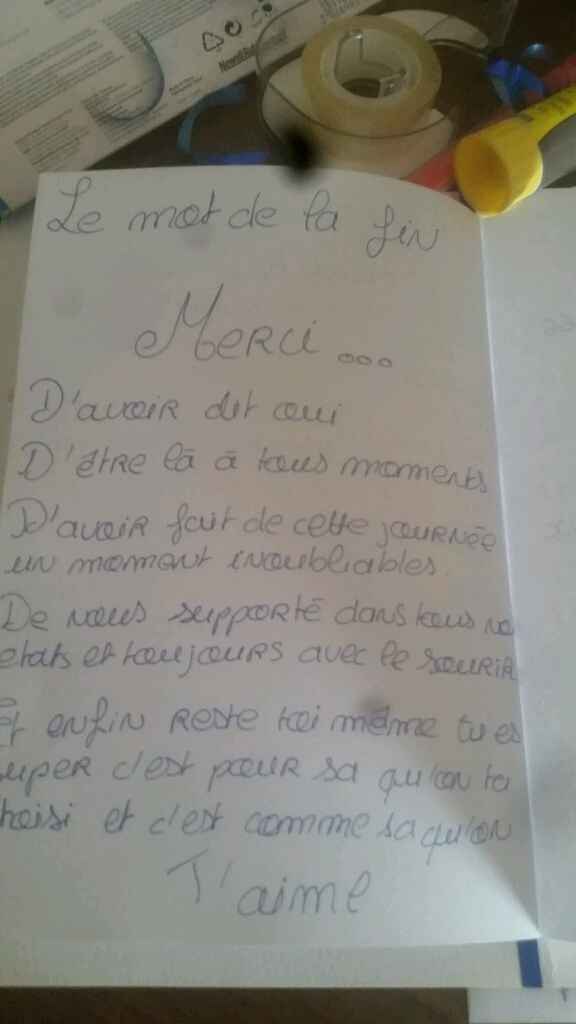 Le mot de la fin
Merci...
D'avoir dit oui
D'être là à tous moments
D'avoir fait de cette journée
un moment inoubliables
De nous supporté dans tous no
etats et toujours avec le sourir
et enfin reste toi même tu es
super c'est pour sa qu'on ta
hoisi et c'est comme sa qu'on
T'aime